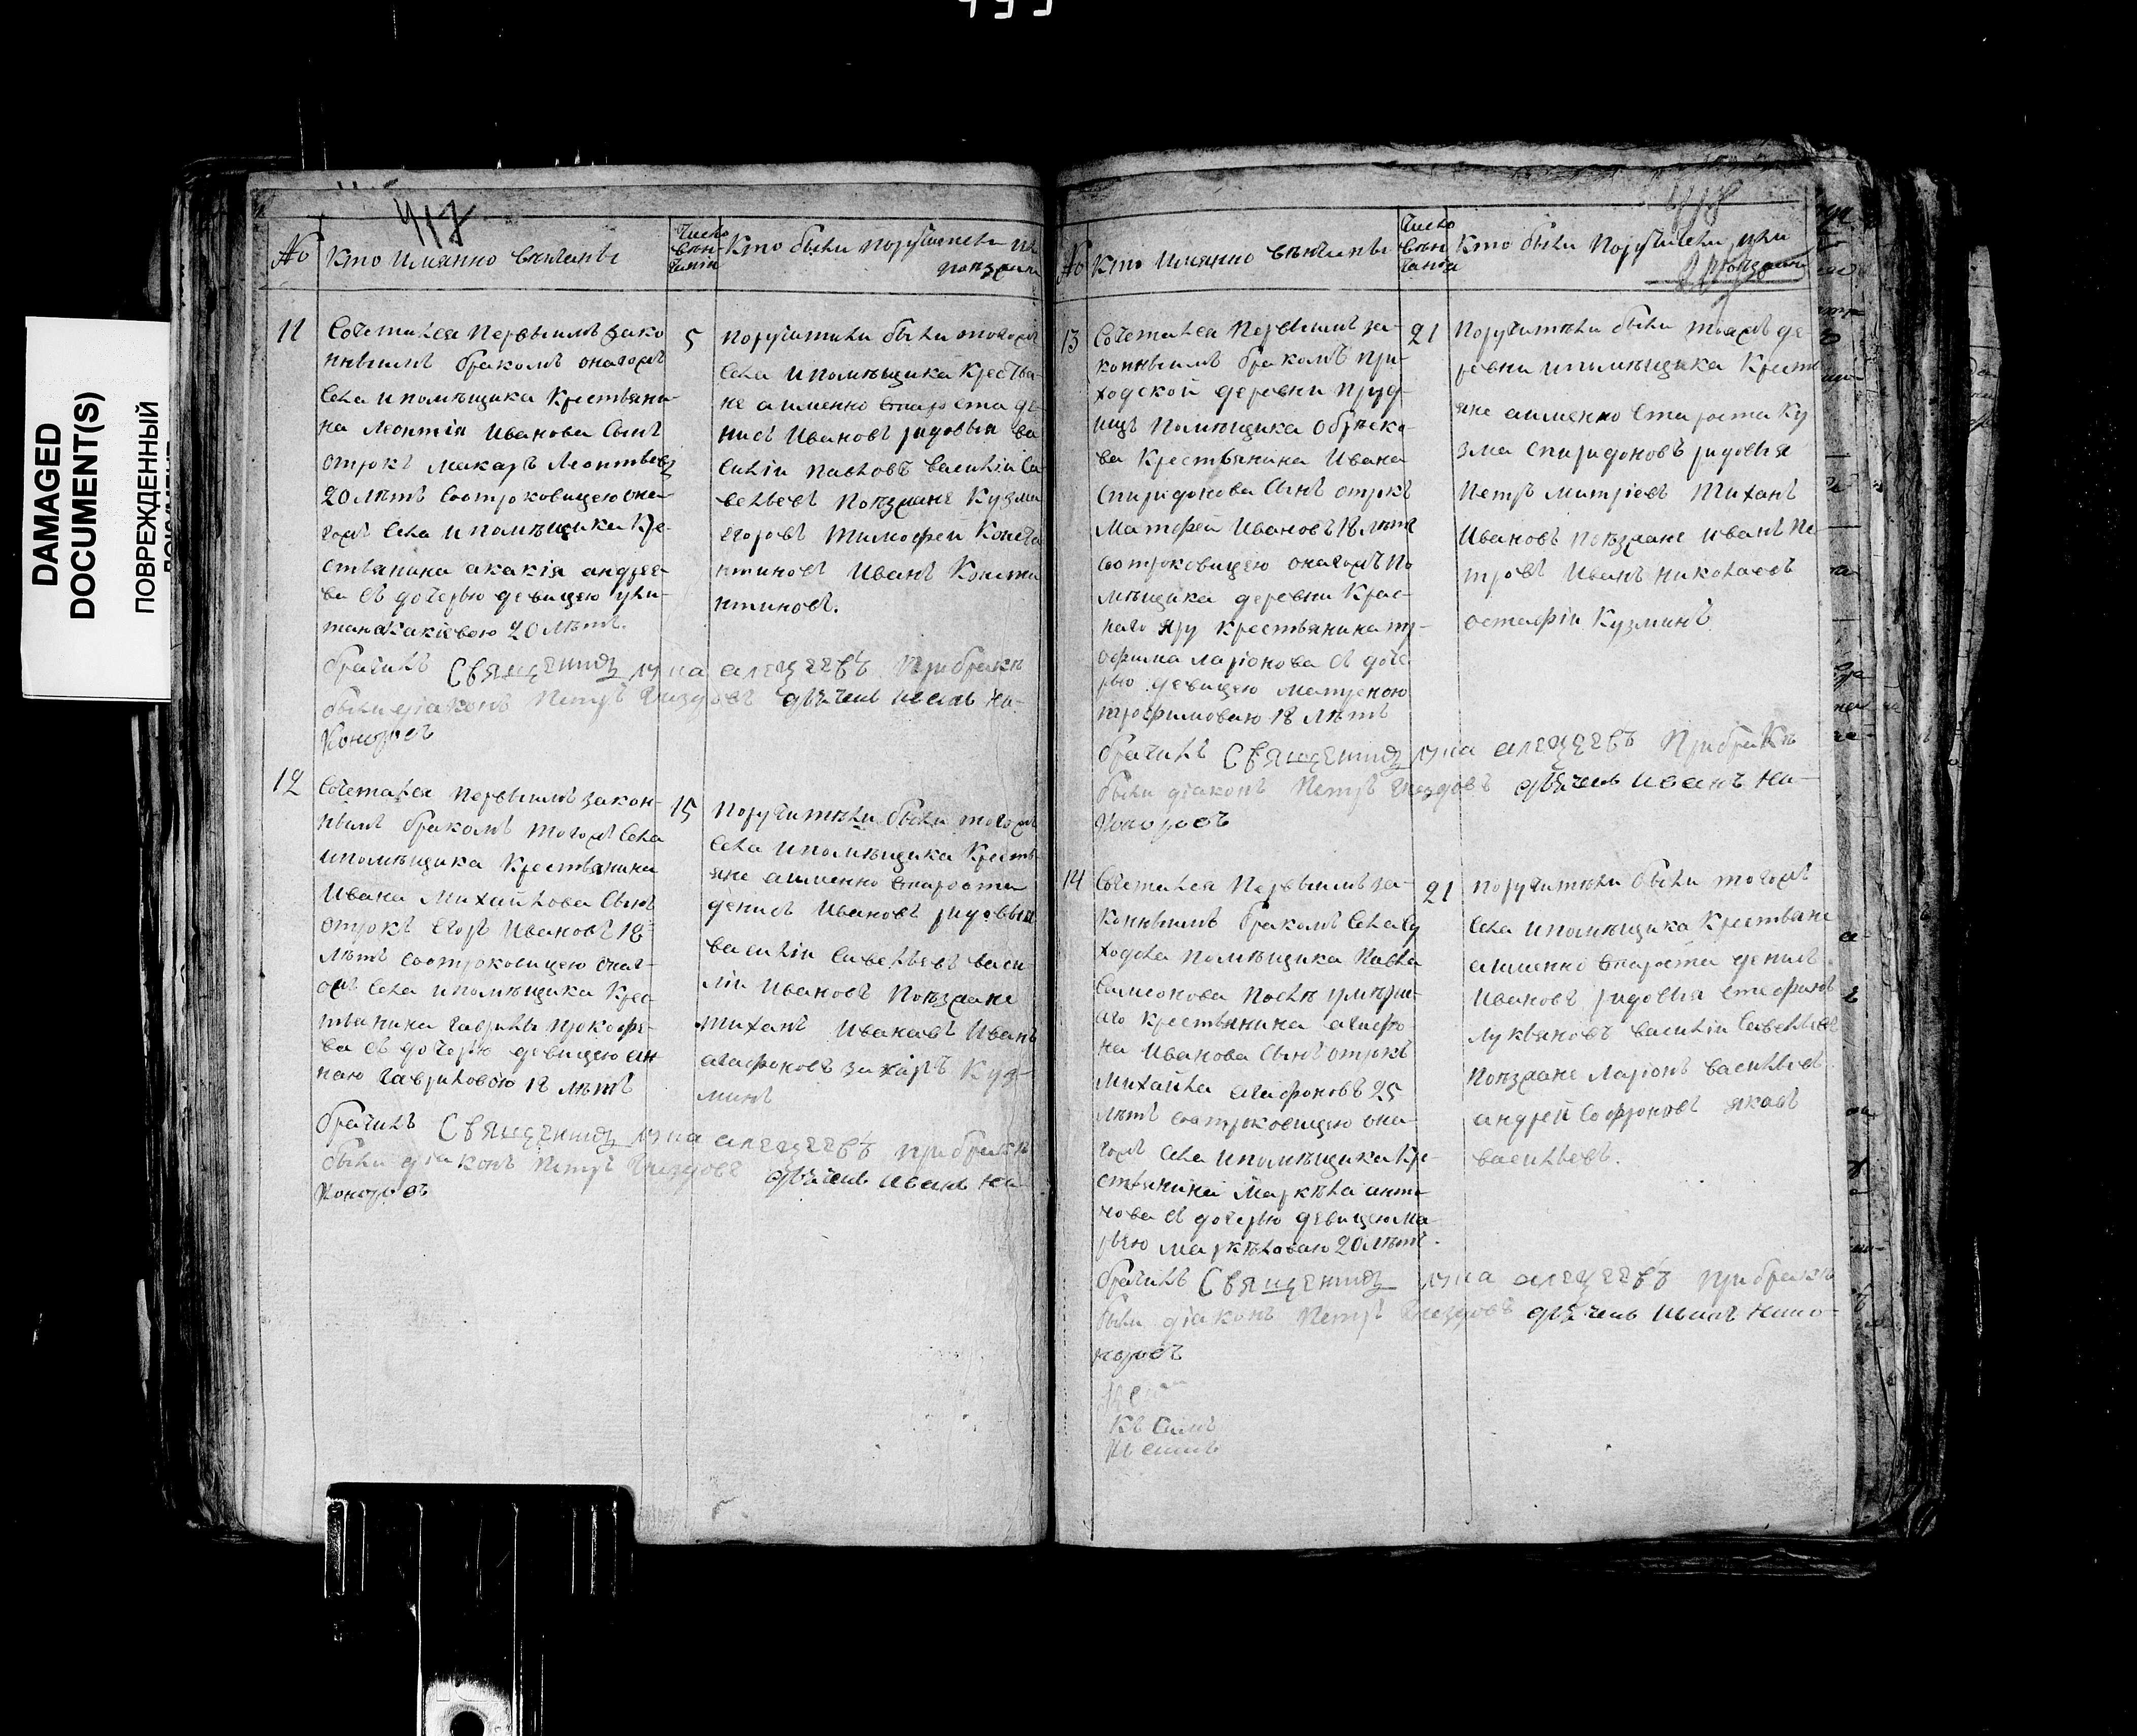 DAMAGED
DOCUMENT(S)
ПОВРЕЖДЕННЫЙ
417
№
Кто имянно венчаны
Число
вен-
чанія
Кто были поручители или
поѣздани
11
Сочетался первымъ зако
ннымъ бракомъ оногожъ
села и помѣщика крестьяни-
на Леонтія Иванова сынъ
отрокъ Макаръ Леонтьевъ
20 лѣтъ соотроковицею оно-
гожъ села и помѣщика кре-
стьянина акакія андрее-
ва съ дочерью девицею ули-
таною акакіевою 20 лѣтъ.
5
поручители были тогожъ
села и помѣщика крестья-
не а именно староста де-
нисъ Ивановъ рядовыя ва
силій павловъ василій са
вельевъ поѣзжане Кузма
егоровъ Тимофеи Конста
нтиновъ Иванъ Конста
нтиновъ.
брачилъ Священникъ лука алеѯеевъ При бракѣ
были діаконъ Петръ Гнездовъ дьячекъ иванъ Ни-
коноровъ
12
Сочетался первымъ закон-
нымъ бракомъ тогожъ села
и помѣщика Крестьянина
Ивана Михайлова сынъ
отрокъ егоръ Ивановъ 18
лѣтъ соотроковицею оног-
ожъ села и помѣщика Крес
тьянина гаврилы прокофье-
ва съ дочерью девицею ан
ною гавриловою 18 лѣтъ
15
поручители были тогожъ
села и помѣщика Кресть
яне а именно староста
денисъ Ивановъ рядовыя
василій савельевъ васи-
лій Ивановъ поѣзжане
Тиханъ Ивановъ Иванъ
агафоновъ захаръ Куз-
минъ
брачилъ Священникъ лука алеѯеевъ при бракѣ
были діаконъ Петръ Гнездовъ дьячекъ иванъ Ни-
коноровъ
418
№
Кто имянно венчаны
Число
вен-
чанія
Кто были поручители или
поѣздани
13
Сочетался первымъ за-
коннымъ бракомъ при-
ходской деревни пруд-
ищъ помѣщика Обреско-
ва Крестьянина Ивана
Спиридонова сынъ отрокъ
Матфей Ивановъ 18 лѣтъ
соотроковицею оногожъ по
мѣщика деревни Крас-
наго яру Крестьянина тр-
офима ларіонова съ доче
рью девицею матреною
трофимовою 18 лѣтъ
21
Поручители были тояжъ де-
ревни и помѣщика Кресть
яне а именно староста Ку
зма Спиридоновъ рядовыя
Петръ митріевъ Тиханъ
Ивановъ поѣзжане Иванъ Пе-
тровъ Иванъ николаевъ
остафій Кузминъ
брачилъ Священникъ лука алеѯеевъ При бракѣ
были діаконъ Петръ Гнездовъ дьячекъ Иванъ Ни-
коноровъ
14
Сочетался Первымъ за-
коннымъ бракомъ села су
ходола помѣщика Павла
Самсонова послѣ умерш-
аго крестьянина агафо-
на Иванова сынъ отрокъ
Михайла агафоновъ 25
лѣтъ соотроковицею оно-
гожъ села и помѣщика Кре-
стьянина Маркѣла анто-
нова съ дочерью девицею ма-
рьею маркѣловою 20 лѣтъ.
21
поручители были тогожъ
села и помѣщика Крестьяне
а именно староста денисъ
Ивановъ рядовыя стефанъ
лукьяновъ василій савельевъ
поѣзжане ларіонъ васильевъ
андрей софроновъ яковъ
васильевъ.
брачилъ Священникъ лука алеѯеевъ при бракѣ
были діаконъ Петръ Гнездовъ дьячекъ Иванъ Нико-
норовъ